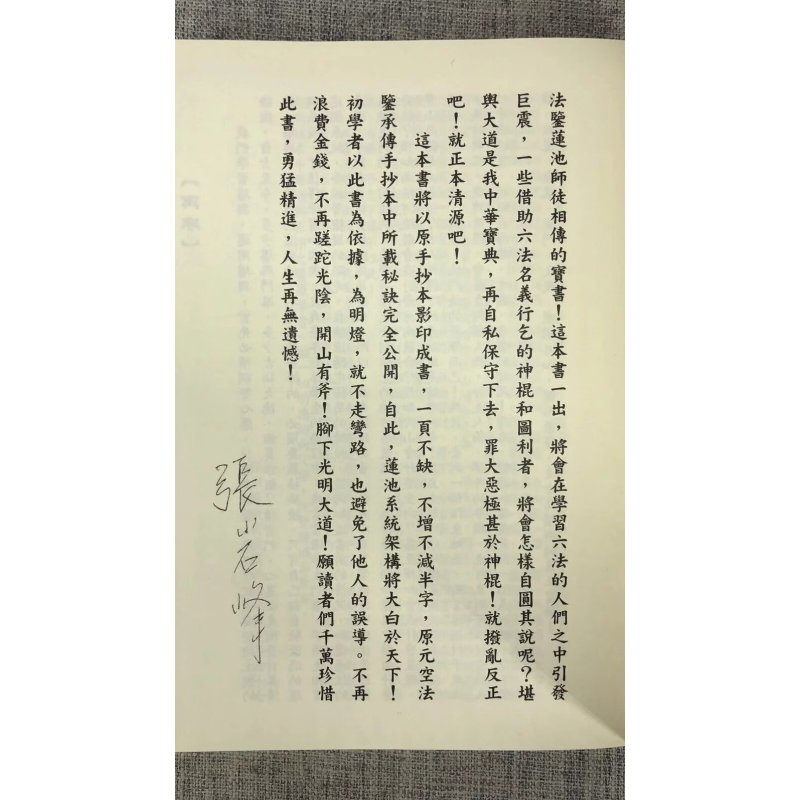 法鑒蓮池師徒相傳的寶書！這本書一出，將會在學習六法的人們之中引發
巨震，一些借助六法名義行乞的神棍和圖利者，將會怎樣自圓其說呢？堪
輿大道是我中華寶典，再自私保守下去，罪大惡極甚於神棍！就撥亂反正
吧！就正本清源吧！
這本書將以原手抄本影印成書，一頁不缺，不增不減半字，原元空法
鑒承傳手抄本中所載秘訣完全公開，自此，蓮池系統架構將大白於天下！
初學者以此書為依據，為明燈，就不走彎路，也避免了他人的誤導。不再
浪費金錢，不再蹉跎光陰，開山有斧！腳下光明大道！願讀者們千萬珍惜
此書，勇猛精進，人生再無遺憾！
張岩峰